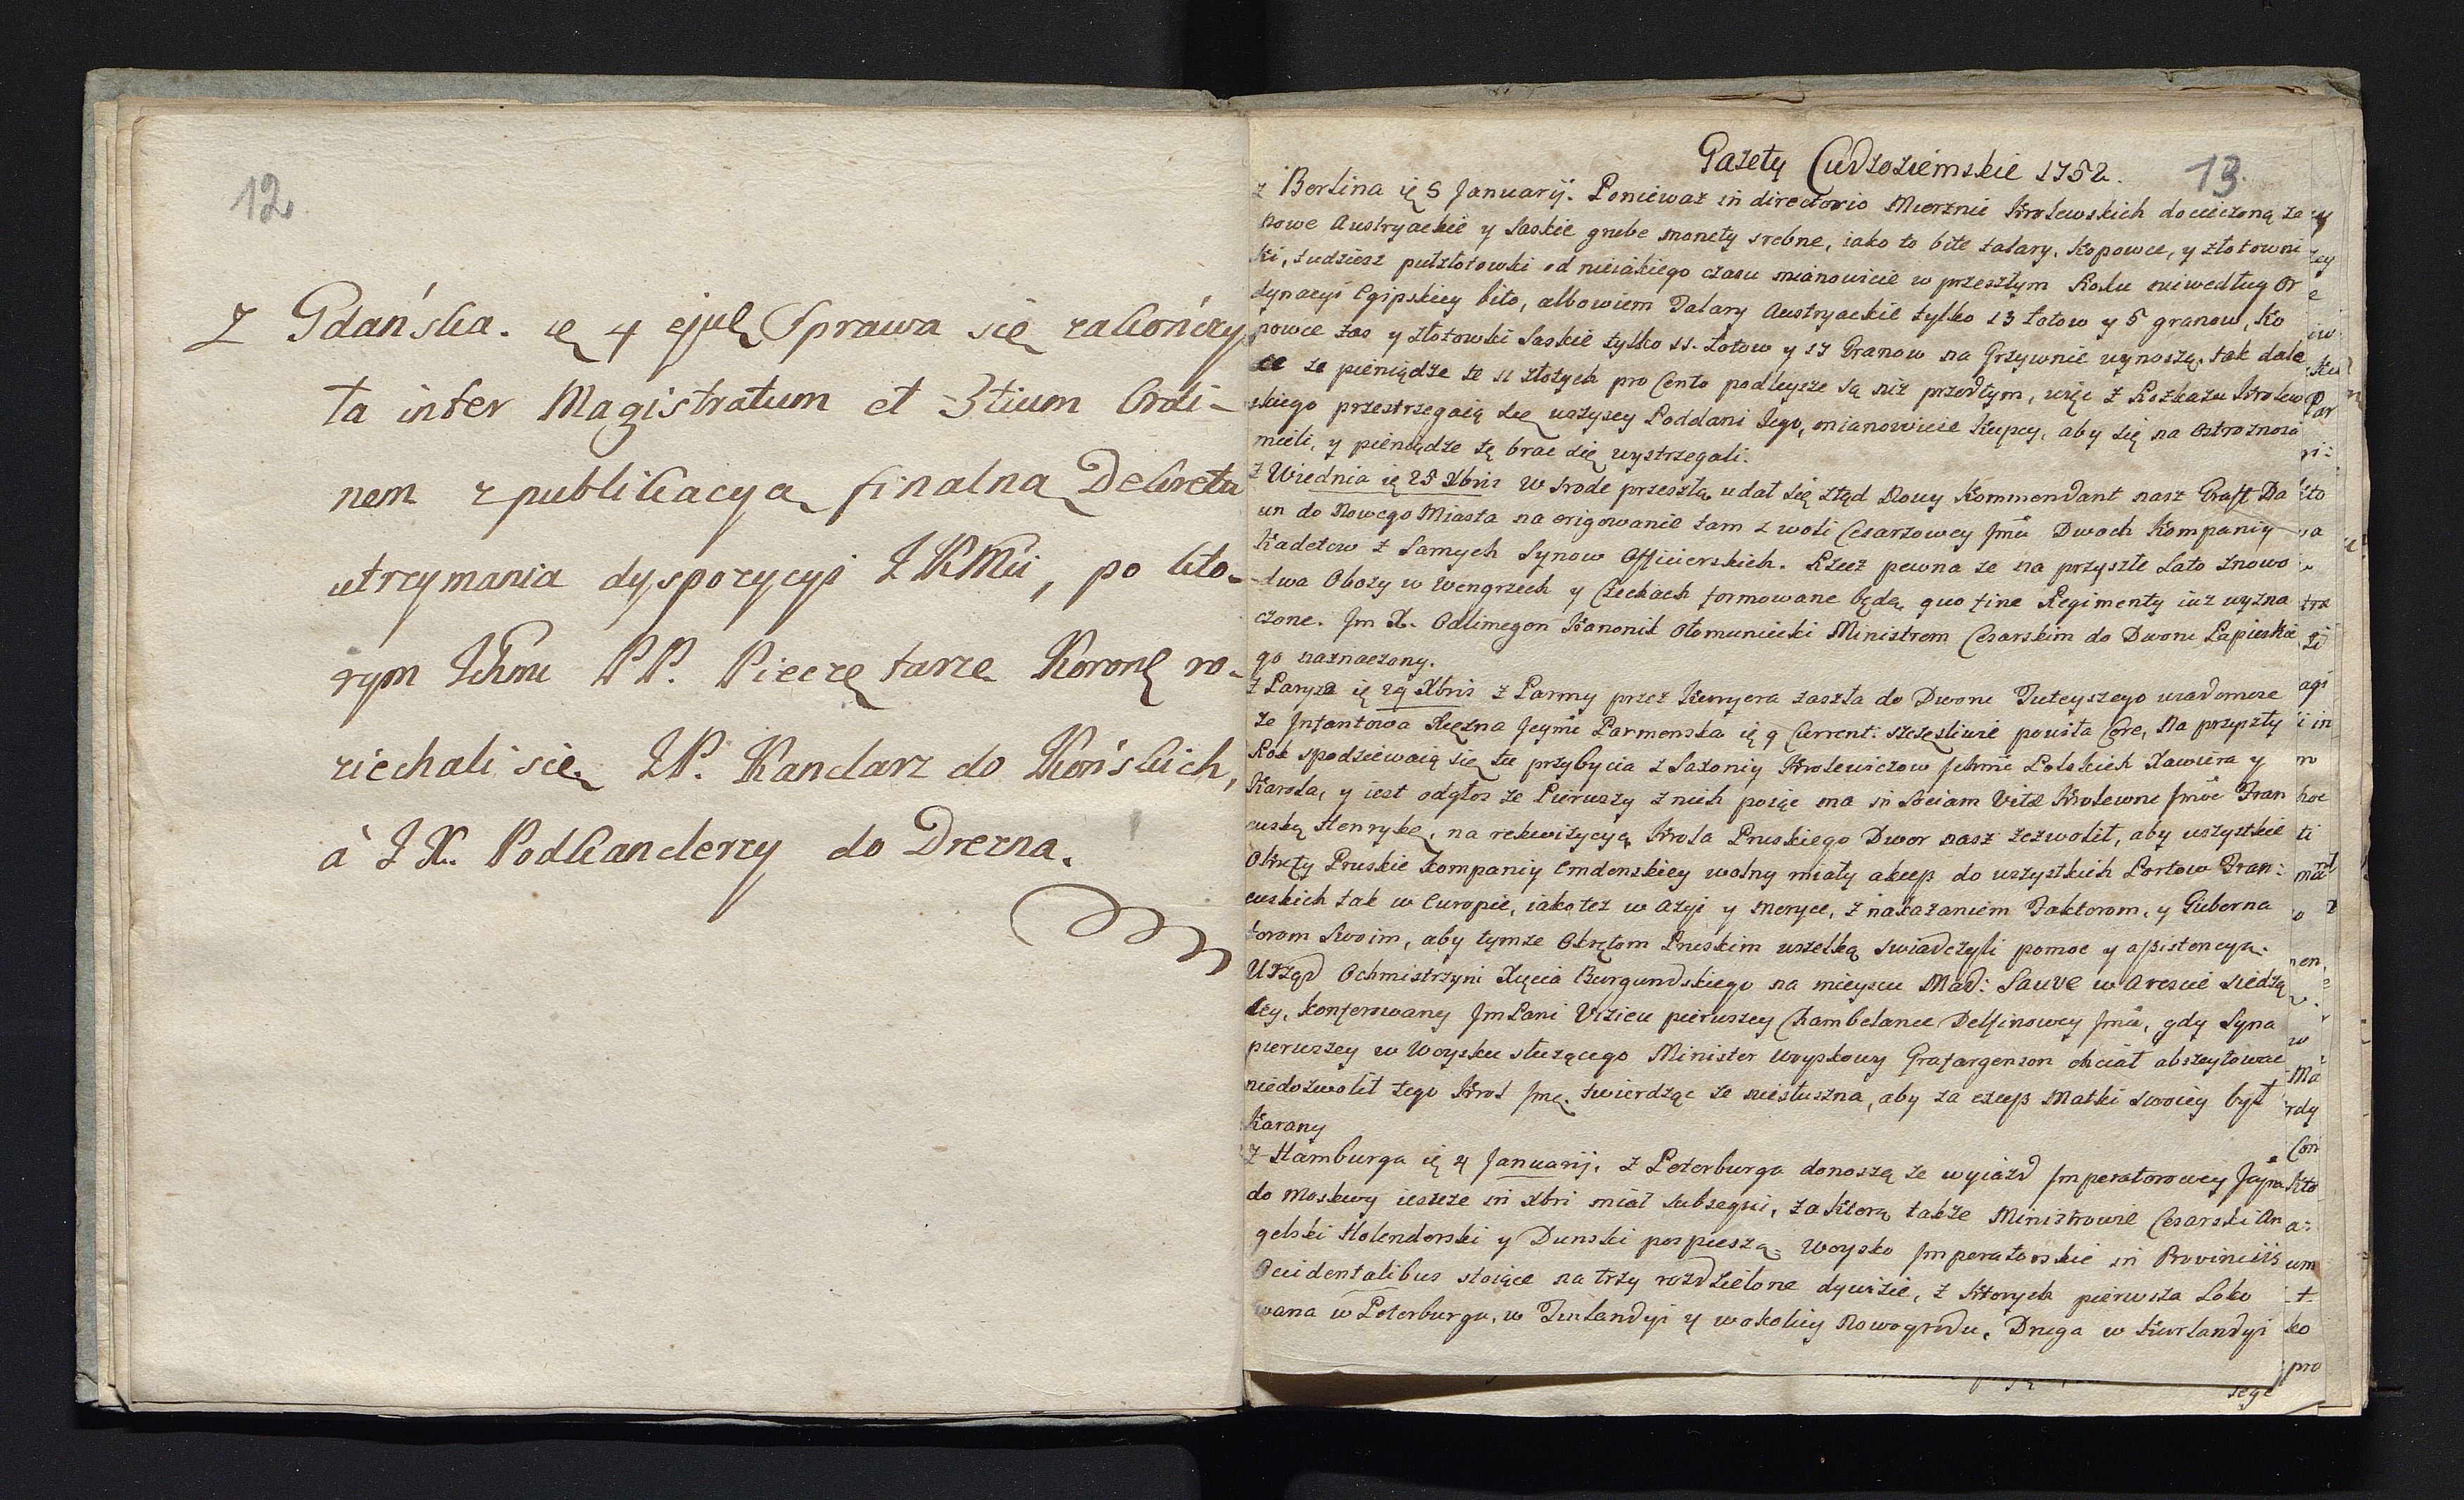 12.
Z Gdańska. ię 4 ejusd Sprawa się zakończy
ta inter Magistratum et 3tium Ordi-
nem z publikacyą finalną Dekretu
utrzymania dyspozycyi JKMci, po kto-
rym Ichmć PP. Pieczętarze Koronę ro-
ziechali się JP. Kanclarz do Końskich,
à J X. Podkanclerzy do Drezna.
Gazety Cudzoziemskie 1752. 13.
z Berlina ię 5 Januarij. Ponieważ in directorio Miernic Krolewskich docieczoną ze
nowe Austryackie y Saskie grube monety srebne, iako to bite talary, Kopowce, y złotowni
ki, tudziesz pułzłotowki od nieiakiego czasu mianowicie w przeszłym Roku niewedług Or
dynacyi Egipskiey bito, albowiem Talary Austryackie tylko 13 łotow y 5 granow, Ko
powce zas y złotowki Saskie tylko 11. łotow y 17 Granow na Grzywnie wynoszą. tak dale
ce ze pieniądze te 11 złotych pro Cento podleysze są niz przedtym, więc z Rozkazu Krolew
skiego przestrzegaią się wszyscy Poddani Jego, mianowicie Kupcy, aby się na Ostroznosci
mieli, y pieniądze tę brac się wystrzegali.
z Wiednia ię 25 Xbris W srodę przeszłą udał się ztąd Nowy Kommendant nasz Graff Da
un do Nowego Miasta na erigowanie tam z woli Cesarzowey Jmci Dwoch Kompaniy
Kadetow z Samych Synow Officierskich. Rzecz pewna ze na przyszłe Lato znowo
dwa Obozy w Wengrzech y Czechach formowane będą, quo fine Regimenty iuz wyzna
czone. Jm X. Odlimegen Kanonik Ołomuniecki Ministrem Cesarskim do Dworu Papieskie
go naznaczony.
z Paryza ię 29 Xbris z Parmy przez Kuryera zaszła do Dworu Tuteyszego wiadomosc
ze Jnfantowa Xięzna Jeymć Parmenska ię 9 Current: szczęsliwie powiła Corę, Na przyszły
Rok spodziewaią się tu przybycia z Saxoniy Krolewiczow Jchmć Polskich Xawiera y
Karola, y iest odgłos ze Pierwszy z nich poiąc ma in Sociam Vitæ Krolewnę Jmść Fran
cuską Henrykę, na rekwizycyą Krola Pruskiego Dwor nasz zezwolił, aby wszystkie
Okręty Pruskie Kompaniy Emdenskiey wolny miały akces do wszystkich Portow Fran:
cuskich tak w Europie, iakotez w Azyi y Meryce, z nakazaniem Faktorom, y Guberna
torom Swoim, aby tymze Okrętom Pruskim wszelką swiadczyli pomoc y assistencyą.
Urząd Ochmistrzyni Xięcia Burgundskiego na mieyscu Mad: Sauve w Areszcie siedzą
cey, Konferowany Jm Pani Vizieu pierwszey Chambelance Delfinowey Jmci, gdy Syna
pierwszey w Woysku służącego Minister Woyskowy Graf argenson chciał abszeytowac
niedozwolił tego Krol Jmć. twierdząc ze niesłuszna, aby za exces Matki Swoiey był
Karany
z Hamburga ię 4 Januarij. z Peterburga donoszą ze wyiazd Jmperatorowey Jeyma
do Moskwy ieszcze in Xbri miał subsequi, za Ktorą takze Ministrowie Cesarski An
gelski Holenderski y Dunski pospieszą. Woysko Jmperatorskie in Provinciis
Occidentalibus stoiące na trzy rozdzielone dywizie, z Ktorych pierwsza Loko
wana w Peterburgu, w Finlandyi y w okolicy Nowogrodu. Druga w Kurlandyi